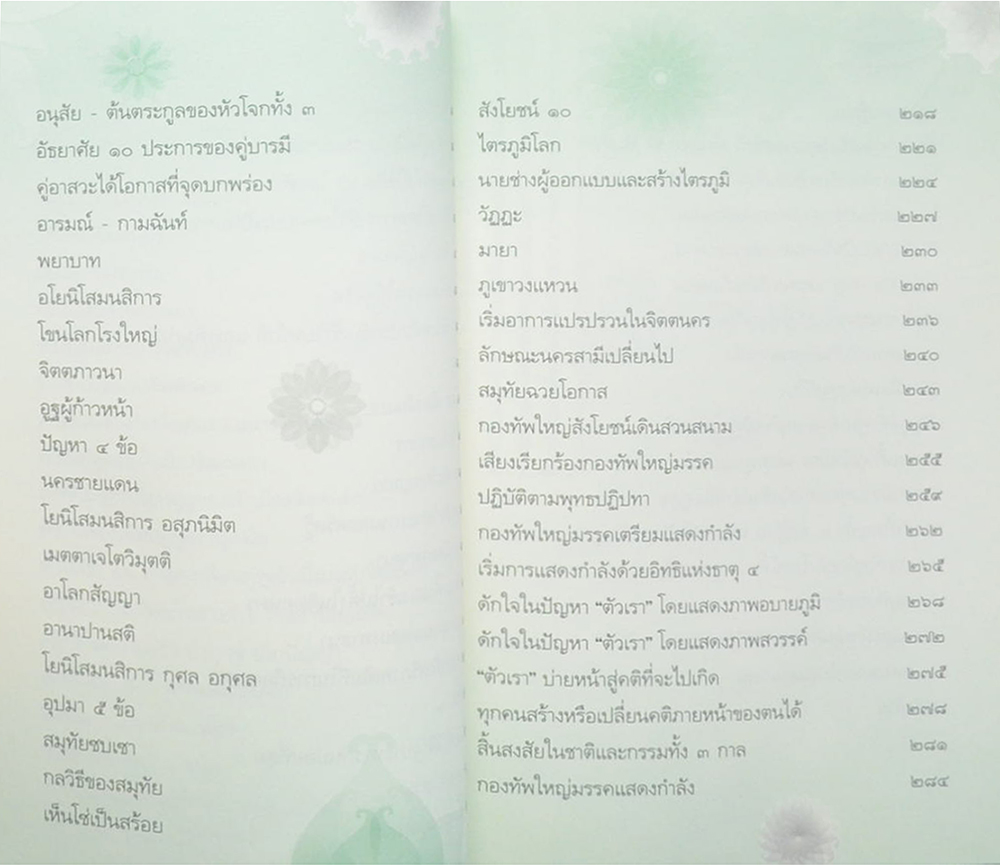 อนุสัย - ต้นตระกูลของหัวโจกทั้ง ๓
อัธยาศัย ๑๐ ประการของคู่บารมี
คู่อาสวะได้โอกาสที่จุดบกพร่อง
อารมณ์ - กามฉันท์
พยาบาท
อโยนิโสมนสิการ
โขนโลกโรงใหญ่
จิตตภาวนา
อูฐผู้ก้าวหน้า
ปัญหา ๔ ข้อ
นครชายแดน
โยนิโสมนสิการ อสุภนิมิต
เมตตาเจโตวิมุตติ
อาโลกสัญญา
อานาปานสติ
โยนิโสมนสิการ กุศล อกุศล
อุปมา ๕ ข้อ
สมุทัยซบเซา
กลวิธีของสมุทัย
เห็นโซ่เป็นสร้อย
สังโยชน์ ๑๐ ๒๑๘
ไตรภูมิโลก ๒๒๑
นายช่างผู้ออกแบบและสร้างไตรภูมิ ๒๒๔
วัฏฏะ ๒๒๗
มายา ๒๓๐
ภูเขาวงแหวน ๒๓๓
เริ่มอาการแปรปรวนในจิตตนคร ๒๓๖
ลักษณะนครสามีเปลี่ยนไป ๒๔๐
สมุทัยฉวยโอกาส ๒๔๓
กองทัพใหญ่สังโยชน์เดินสวนสนาม ๒๔๖
เสียงเรียกร้องกองทัพใหญ่มรรค ๒๕๕
ปฏิบัติตามพุทธปฏิปทา ๒๕๙
กองทัพใหญ่มรรคเตรียมแสดงกำลัง ๒๖๒
เริ่มการแสดงกำลังด้วยอิทธิแห่งธาตุ ๔ ๒๖๕
ดักใจในปัญหา “ตัวเรา” โดยแสดงภาพอบายภูมิ ๒๖๘
ดักใจในปัญหา “ตัวเรา” โดยแสดงภาพสวรรค์ ๒๗๒
“ตัวเรา” บ่ายหน้าสู่คติที่จะไปเกิด ๒๗๕
ทุกคนสร้างหรือเปลี่ยนคติภายหน้าของตนได้ ๒๗๘
สิ้นสงสัยในชาติและกรรมทั้ง ๓ กาล ๒๘๑
กองทัพใหญ่มรรคแสดงกำลัง ๒๘๔